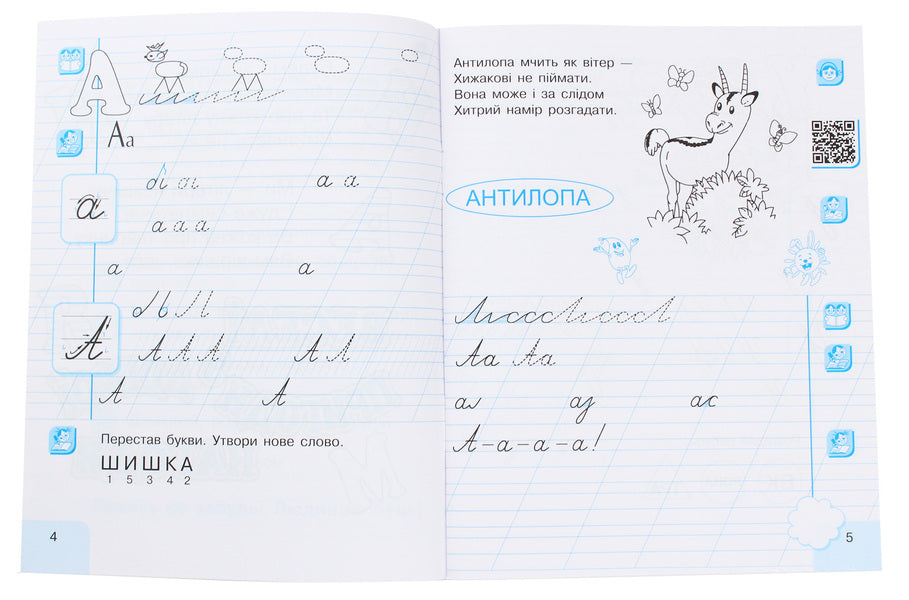 А
Аа
а а
а
а а а
а а
А
А А А А А
А А
Перестав букви. Утвори нове слово.
ШИШКА
1 5 3 4 2
4
Антилопа мчить як вітер —
Хижакові не піймати.
Вона може і за слідом
Хитрий намір розгадати.
АНТИЛОПА
Аа Аа
ас
А-а-а-а!
5